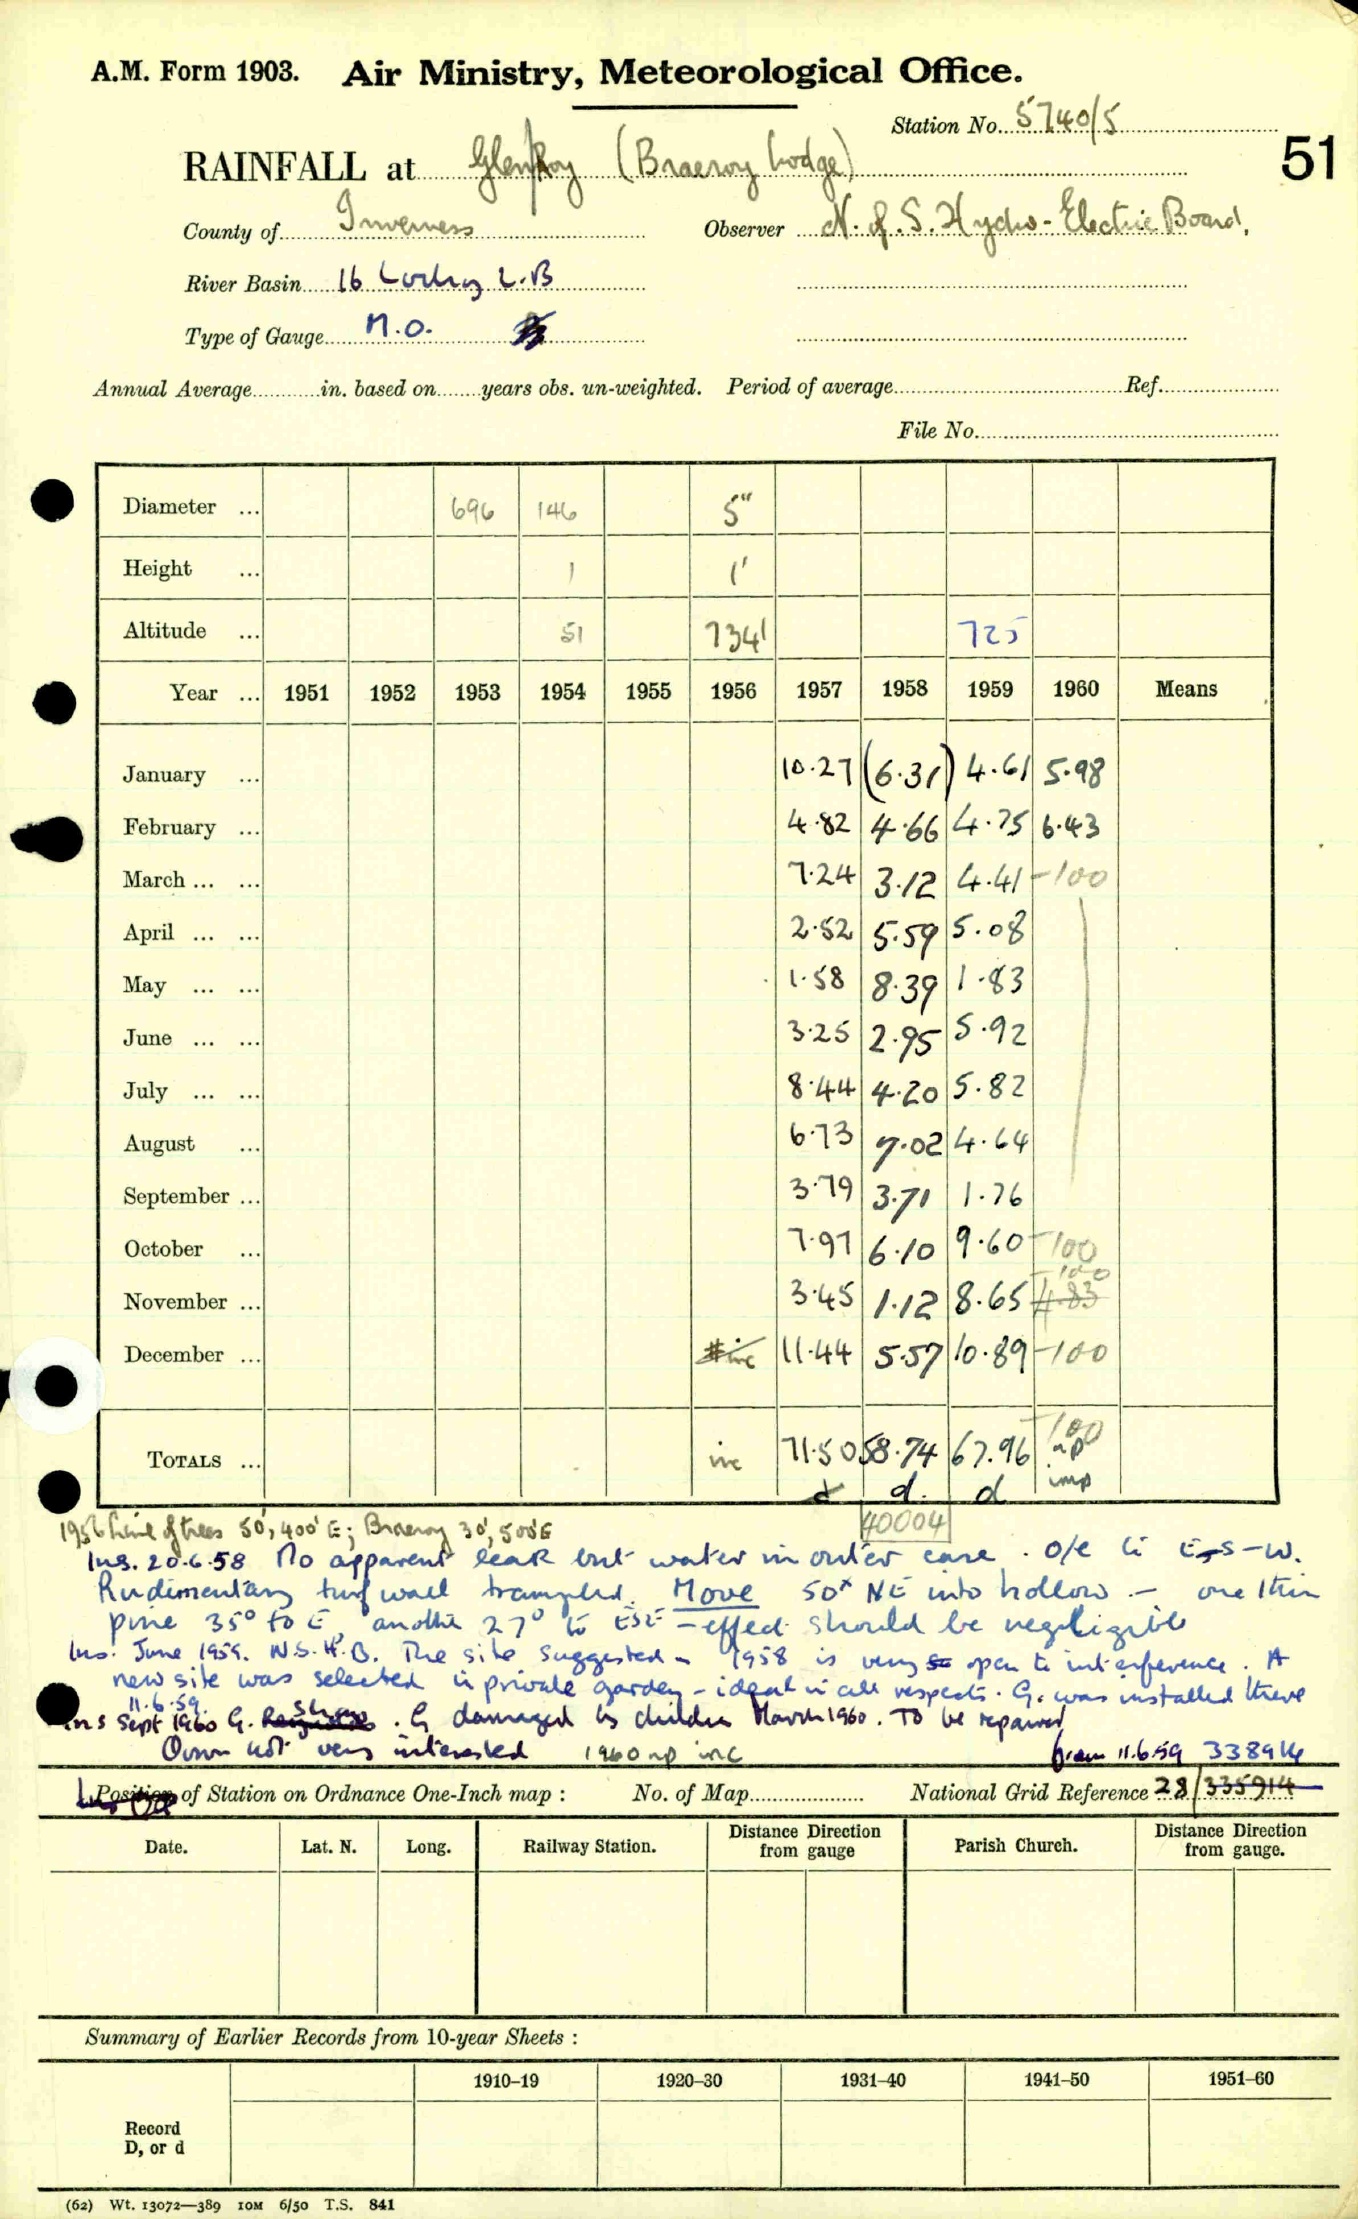 A.M. Form 1903. Air Ministry, Meteorological Office.
Station No. 5740/5
51
RAINFALL at Glen Roy (Braeroy Lodge)
County of Inverness Observer N. of S. Hydro-Electric Board.
River Basin 16 Lochy L.B
Type of Gauge M.O.
Annual Average in. based on years obs. un-weighted. Period of average Ref.
File No.
Diameter ... 696 146 5"
Height ... 1 1'
Altitude ... 51 734' 725
Year ... 1951 1952 1953 1954 1955 1956 1957 1958 1959 1960 Means
January ... 10.27 (6.31) 4.61 5.98
February ... 4.82 4.66 4.75 6.43
March ... ... 7.24 3.12 4.41 -100
April ... ... 2.52 5.59 5.08
May ... ... 1.58 8.39 1.83
June ... ... 3.25 2.95 5.92
July ... ... 8.44 4.20 5.82
August ... 6.73 7.02 4.64
September ... 3.79 3.71 1.76
October ... 7.97 6.10 9.60 -100
-100
November ... 3.45 1.12 8.65 4.83
December ... inc 11.44 5.57 10.89 -100
-100
TOTALS ... inc 71.50 58.74 67.96 np
d d. d imp
40004
1956 Line of trees 50', 400' E; Braeroy 30', 500' E
Ins. 20.6.58 No apparent leak but water in outer case. O/e to E-S-W.
Rudimentary turf wall trampled. Move 50x NE into hollow - one thin
pine 35° to E, another 27° to ESE - effect should be negligible
Ins. June 1959. N.S.H.B. The site suggested in 1958 is very open to interference. A
new site was selected in private garden - ideal in all respects. G. was installed there
11.6.59.
Ins Sept 1960 G. . G damaged by children March 1960. To be repaired
Owner not very interested 1960 np inc from 11.6.59 338914
Position of Station on Ordnance One-Inch map : No. of Map National Grid Reference 28/335914
Date. Lat. N. Long. Railway Station. Distance from gauge Direction Parish Church. Distance Direction from gauge.
Summary of Earlier Records from 10-year Sheets :
1910–19 1920–30 1931–40 1941–50 1951–60
Record
D, or d
(62) Wt. 13072—389 10M 6/50 T.S. 841